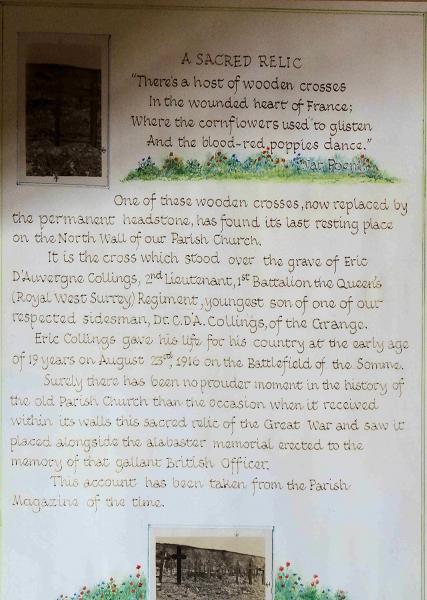 A SACRED RELIC
"There's a host of wooden crosses
In the wounded heart of France;
Where the cornflowers used to glisten
And the blood-red poppies dance."
War Poems
One of these wooden crosses, now replaced by
the permanent headstone, has found it's last resting place
on the North Wall of our Parish Church.
It is the cross which stood over the grave of Eric
D'Auvergne Collings, 2nd Lieutenant, 1st Battalion the Queen's
(Royal West Surrey) Regiment, youngest son of one of our
respected sidesman, Dr. C.D'A. Collings, of the Grange.
Eric Collings gave his life for his country at the early age
of 19 years on August 23rd, 1916 on the Battlefield of the Somme.
Surely there has been no prouder moment in the history of
the old Parish Church than the occasion when it received
within its walls this sacred relic of the Great War and saw it
placed alongside the alabaster memorial erected to the
memory of that gallant British Officer.
This account has been taken from the Parish
Magazine of the time.